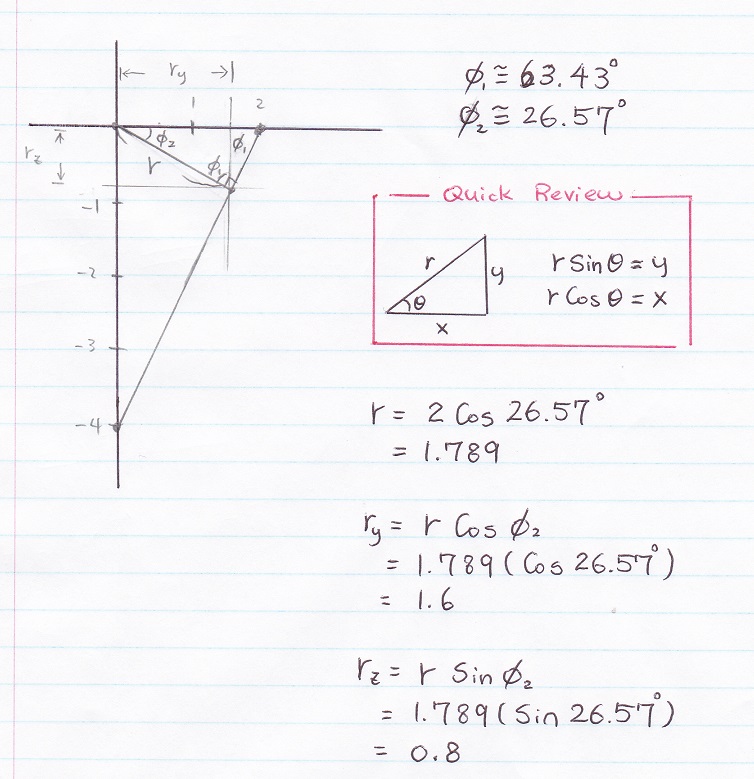 r_y
1 2
ϕ₂ ϕ₁
r_z
r ϕ₁
-1
-2
-3
-4
ϕ₁ ≅ 63.43°
ϕ₂ ≅ 26.57°
Quick Review
r y
θ
x
r Sin θ = y
r Cos θ = x
r = 2 Cos 26.57°
= 1.789
r_y = r Cos ϕ₂
= 1.789 (Cos 26.57°)
= 1.6
r_z = r Sin ϕ₂
= 1.789 (Sin 26.57°)
= 0.8